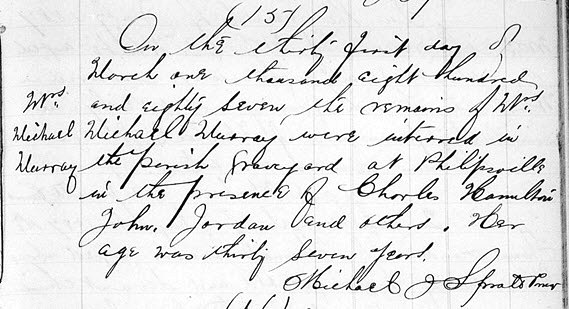 (15)
On the thirty first day of
March one thousand eight hundred
and eighty seven the remains of Mrs.
Michael Murray were interred in
the parish graveyard at Philipsville
in the presence of Charles Hamilton
John, Jordan and others. Her
age was thirty seven years.
Michael J Spratt
Mrs.
Michael
Murray